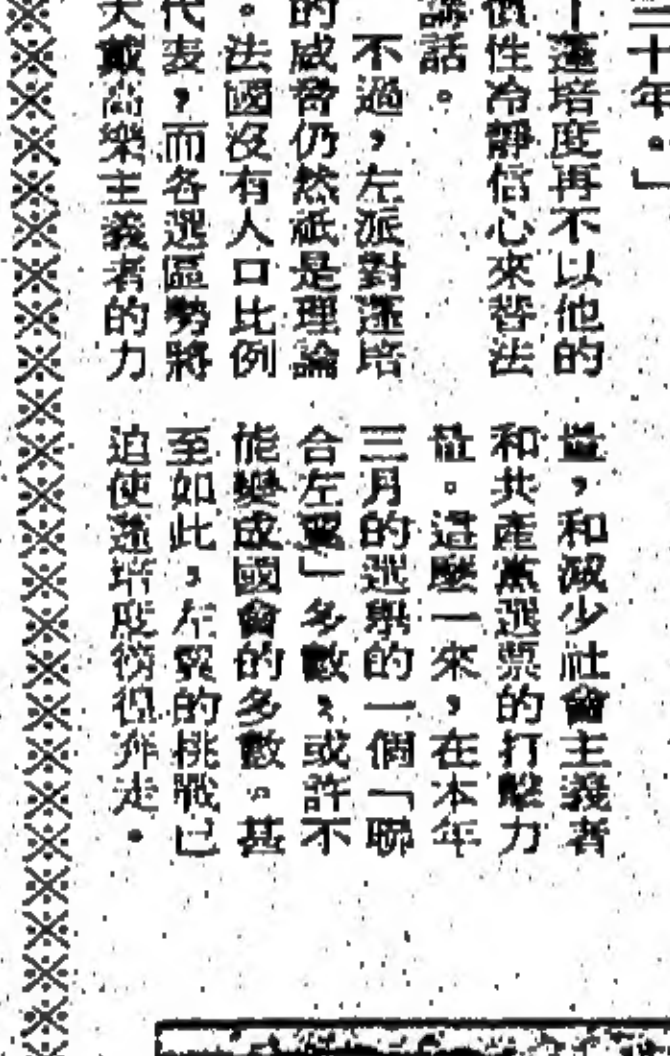 三十年。」
蓬培度再不以他的
慣性冷靜信心來替法
講話。
不過，左派對蓬培
的威脅仍然祇是理論
。法國沒有人口比例
代表，而各選區勢將
大戴高樂主義者的力
量，和減少社會主義者
和共產黨選票的打擊力
量。這麼一來，在本年
三月的選舉的一個「聯
合左翼」多數，或許不
能變成國會的多數。甚
至如此，左翼的挑戰已
迫使蓬培度徬徨奔走。